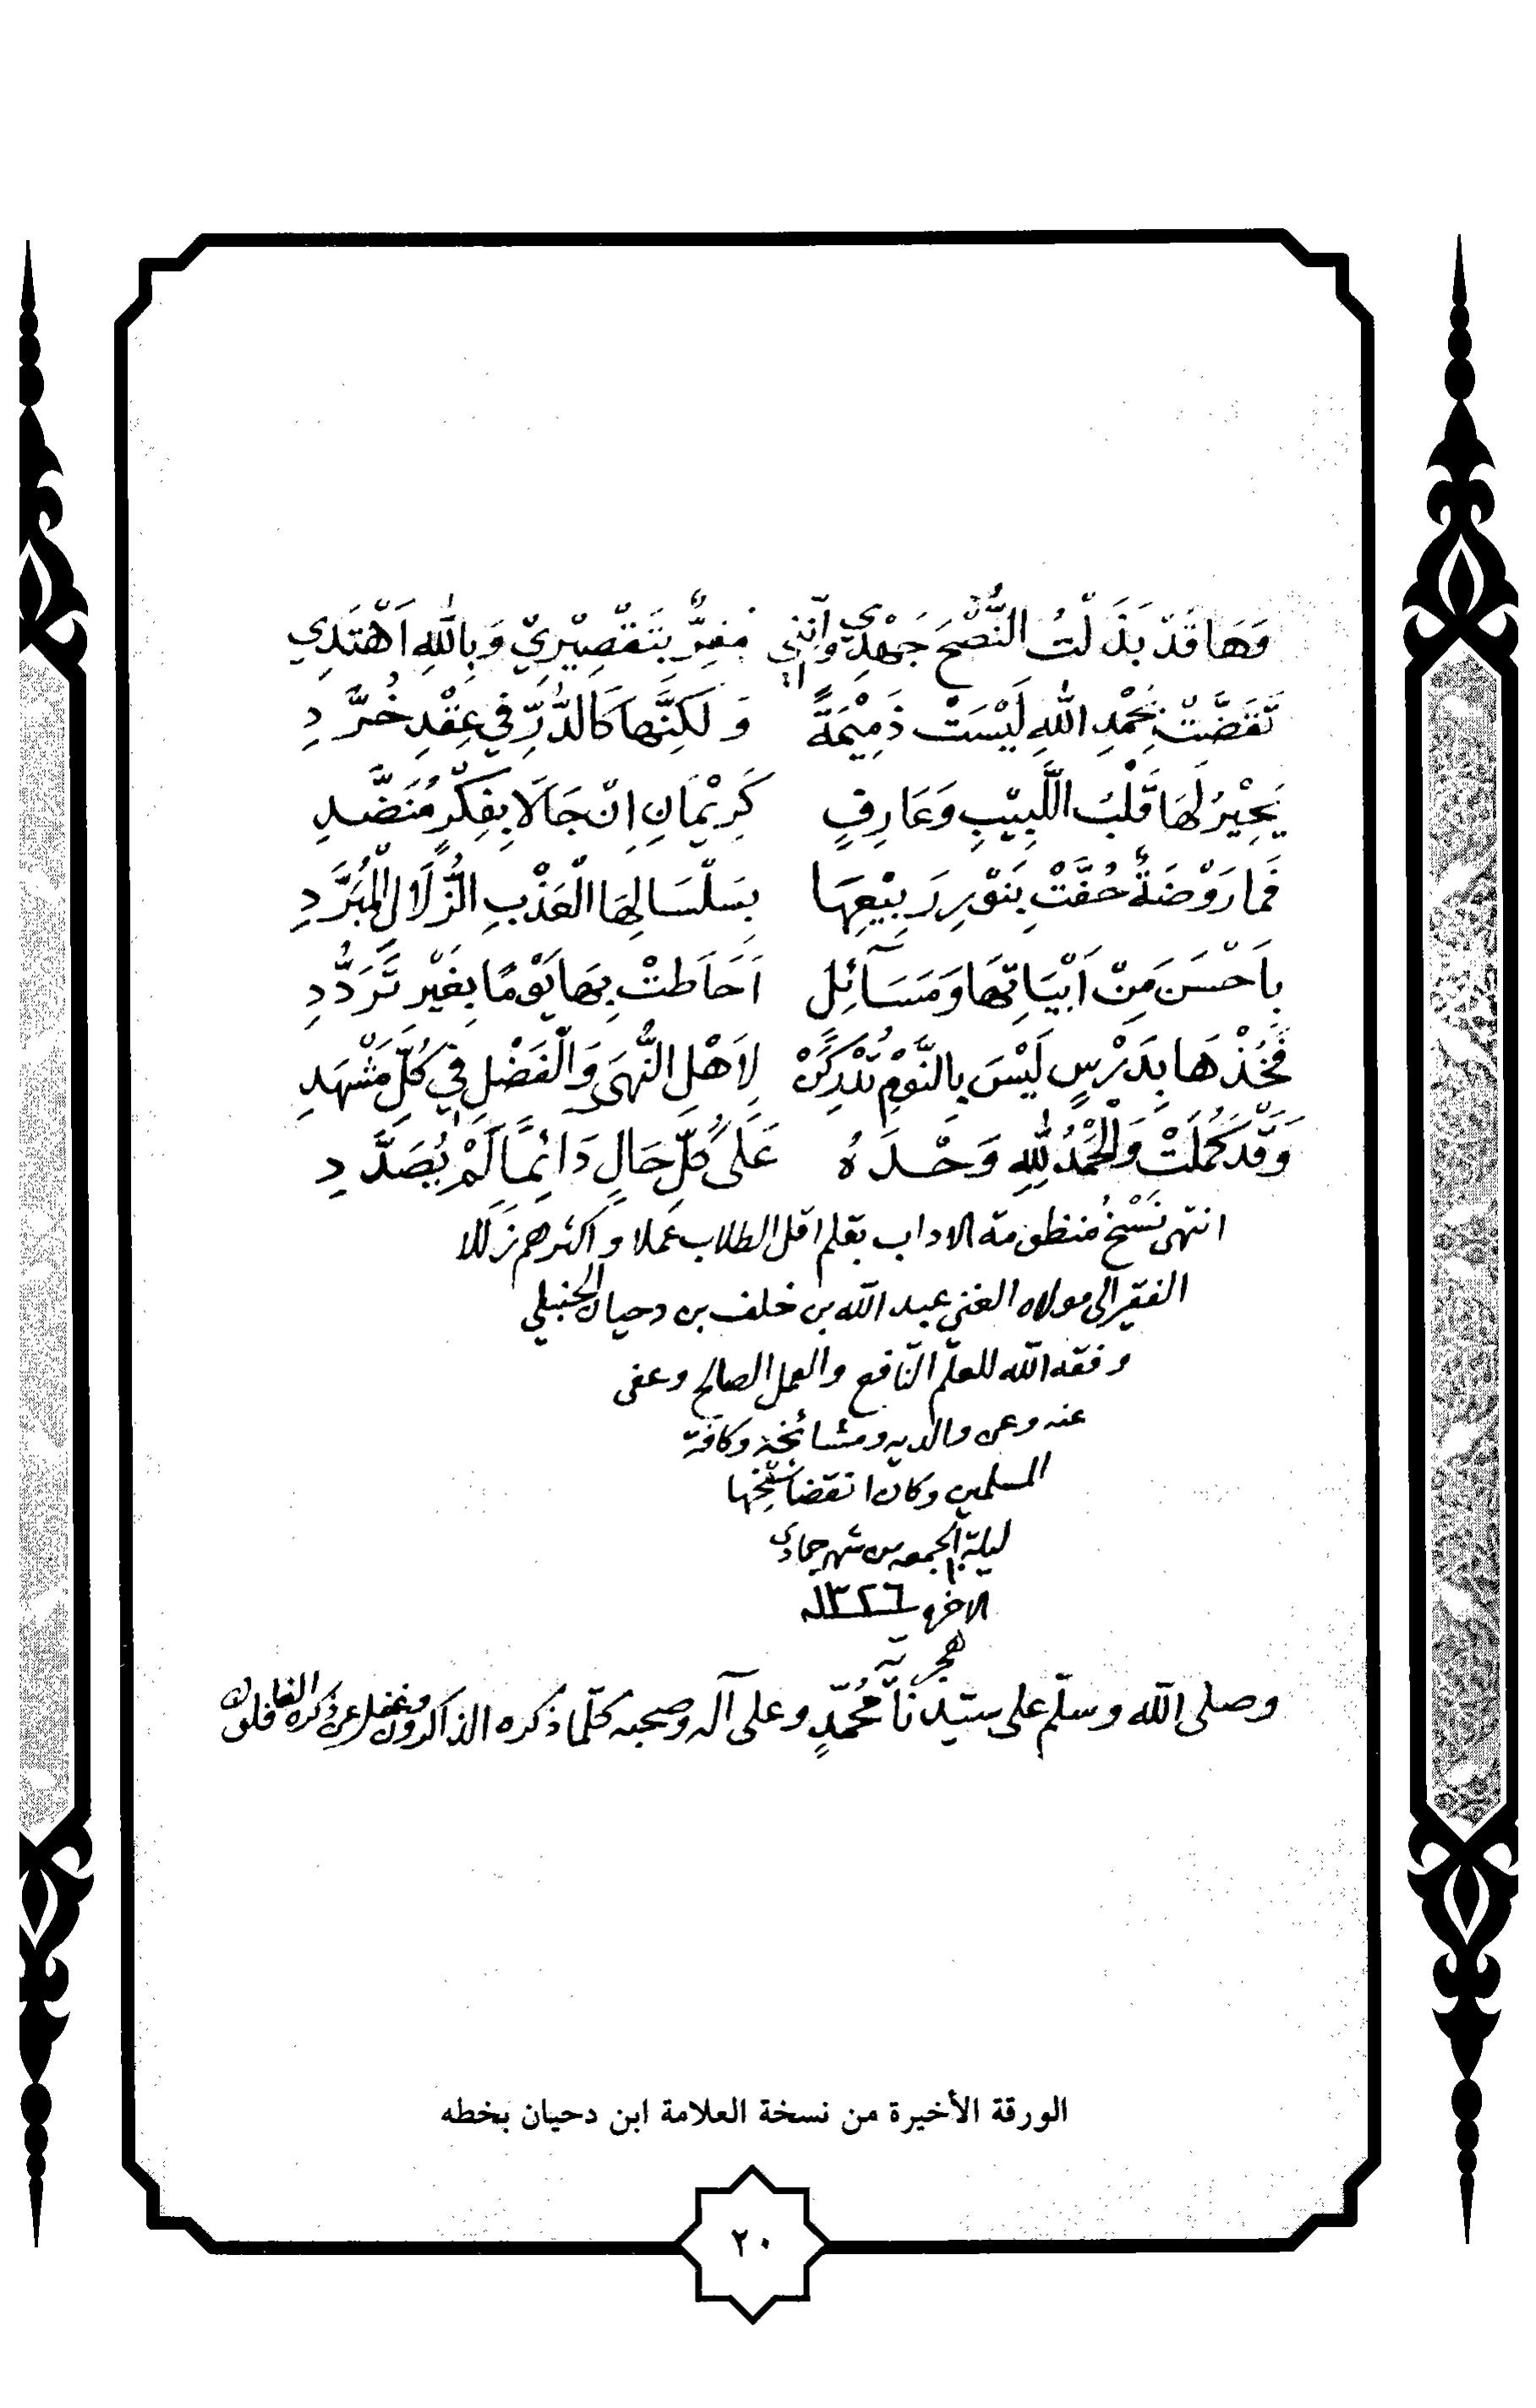 وَهَا قَدْ بَذَلْتُ النُّصْحَ جَهْدِي وَإِنَّنِي مُقِرٌّ بِتَقْصِيْرِيْ وَبِاللهِ اَهْتَدِي
تَقَضَّتْ بِحَمْدِ اللهِ لَيْسَتْ ذَمِيْمَةً وَلَكِنَّهَا كَالدُّرِّ فِي عِقْدِ خُرَّدِ
يَحِيْرُ لَهَا قَلْبُ اللَّبِيْبِ وَعَارِفٍ كَرِيْمَانِ اِنْ جَالَا بِفِكْرٍ مُنَضَّدِ
فَمَا رَوْضَةٌ حُفَّتْ بِنَوْرِ رَبِيْعِهَا بِسَلْسَالِهَا الْعَذْبِ الزُّلَالِ الْمُبَرَّدِ
بِاَحْسَنَ مِنْ اَبْيَاتِهَا وَمَسَآئِلٍ اَحَاطَتْ بِهَا يَوْمًا بِغَيْرِ تَرَدُّدِ
فَخُذْهَا بِدَرْسٍ لَيْسَ بِالنَّوْمِ تُدْرِكَنْ لِاَهْلِ النُّهَى وَالْفَضْلِ فِي كُلِّ مَشْهَدِ
وَقَدْ كَمُلَتْ وَالْحَمْدُ لِلهِ وَحْدَهُ عَلَى كُلِّ حَالٍ دَائِمًا لَمْ يُصَدَّدِ
انتهى نَسْخُ منظومة الاداب بقلم اقل الطلاب عملا واكثرهم زللا
الفقير الى مولاه الغني عبد الله بن خلف بن دحيان الحنبلي
وفقه الله للعلم النّافع والعمل الصالح وعفى
عنه وعن والديه ومشائخه وكافة
المسلمين وكان انقضا نسخها
ليلة الجمعه من شهر جمادى
الاخره ١٣٢٦
هجريه
وصلى الله وسلّم على سيّدنا مُحمّدٍ وعلى آله وصحبه كلّما ذكره الذاكرون وغفل عن ذكره الغافلون
الورقة الأخيرة من نسخة العلامة ابن دحيان بخطه
٢٠